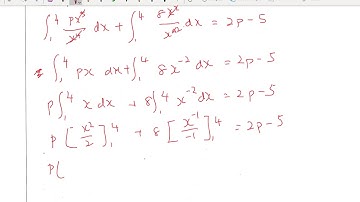 ∫₁⁴ px³/x² dx + ∫₁⁴ 8x⁰/x² dx = 2p - 5
∫₁⁴ px dx + ∫₁⁴ 8x⁻² dx = 2p - 5
p∫₁⁴ x dx + 8∫₁⁴ x⁻² dx = 2p - 5
p [x²/2]₁⁴ + 8 [x⁻¹/-1]₁⁴ = 2p - 5
p(